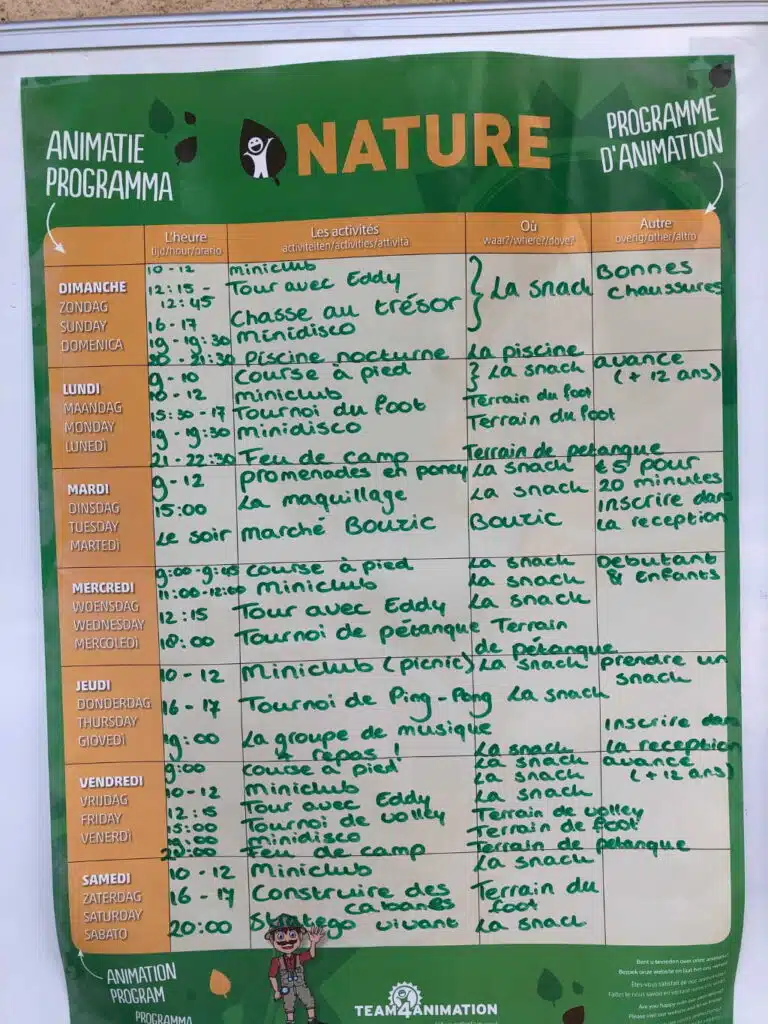 ANIMATIE
PROGRAMMA
NATURE
PROGRAMME
D'ANIMATION
L'heure
tijd/hour/orario
Les activités
activiteiten/activities/attività
Où
waar?/where?/dove?
Autre
overig/other/altro
DIMANCHE
ZONDAG
SUNDAY
DOMENICA
10-12 miniclub
12:15 - 12:45 Tour avec Eddy
16-17 Chasse au trésor
19-19:30 minidisco
La snack
Bonnes chaussures
20-21:30 Piscine nocturne La piscine
LUNDI
MAANDAG
MONDAY
LUNEDÌ
9-10 Course à pied La snack avance (+12 ans)
10-12 miniclub Terrain du foot
15:30-17 Tournoi du foot Terrain du foot
19-19:30 minidisco
21-22:30 Feu de camp Terrain de petanque
MARDI
DINSDAG
TUESDAY
MARTEDÌ
9-12 promenades en poney La snack €5 pour 20 minutes
15:00 La maquillage La snack inscrire dans la reception
Le soir marché Bouzic Bouzic
MERCREDI
WOENSDAG
WEDNESDAY
MERCOLEDÌ
9:00-9:45 course à pied La snack Debutant & enfants
11:00-12:00 Miniclub La snack
12:15 Tour avec Eddy La snack
18:00 Tournoi de pétanque Terrain de pétanque
JEUDI
DONDERDAG
THURSDAY
GIOVEDÌ
10-12 Miniclub (picnic) La snack prendre un snack
16-17 Tournoi de Ping-Pong La snack
19:00 La groupe de musique + repas! La snack Inscrire dans la reception
VENDREDI
VRIJDAG
FRIDAY
VENERDÌ
9:00 course à pied La snack avance (+12 ans)
10-12 Miniclub La snack
12:15 Tour avec Eddy La snack
15:00 Tournoi de volley Terrain de volley
minidisco Terrain de foot
Feu de camp Terrain de petanque
SAMEDI
ZATERDAG
SATURDAY
SABATO
10-12 Miniclub La snack
16-17 Construire des cabanes Terrain du foot
20:00 Stratego vivant La snack
ANIMATION
PROGRAM
PROGRAMMA
TEAM4ANIMATION